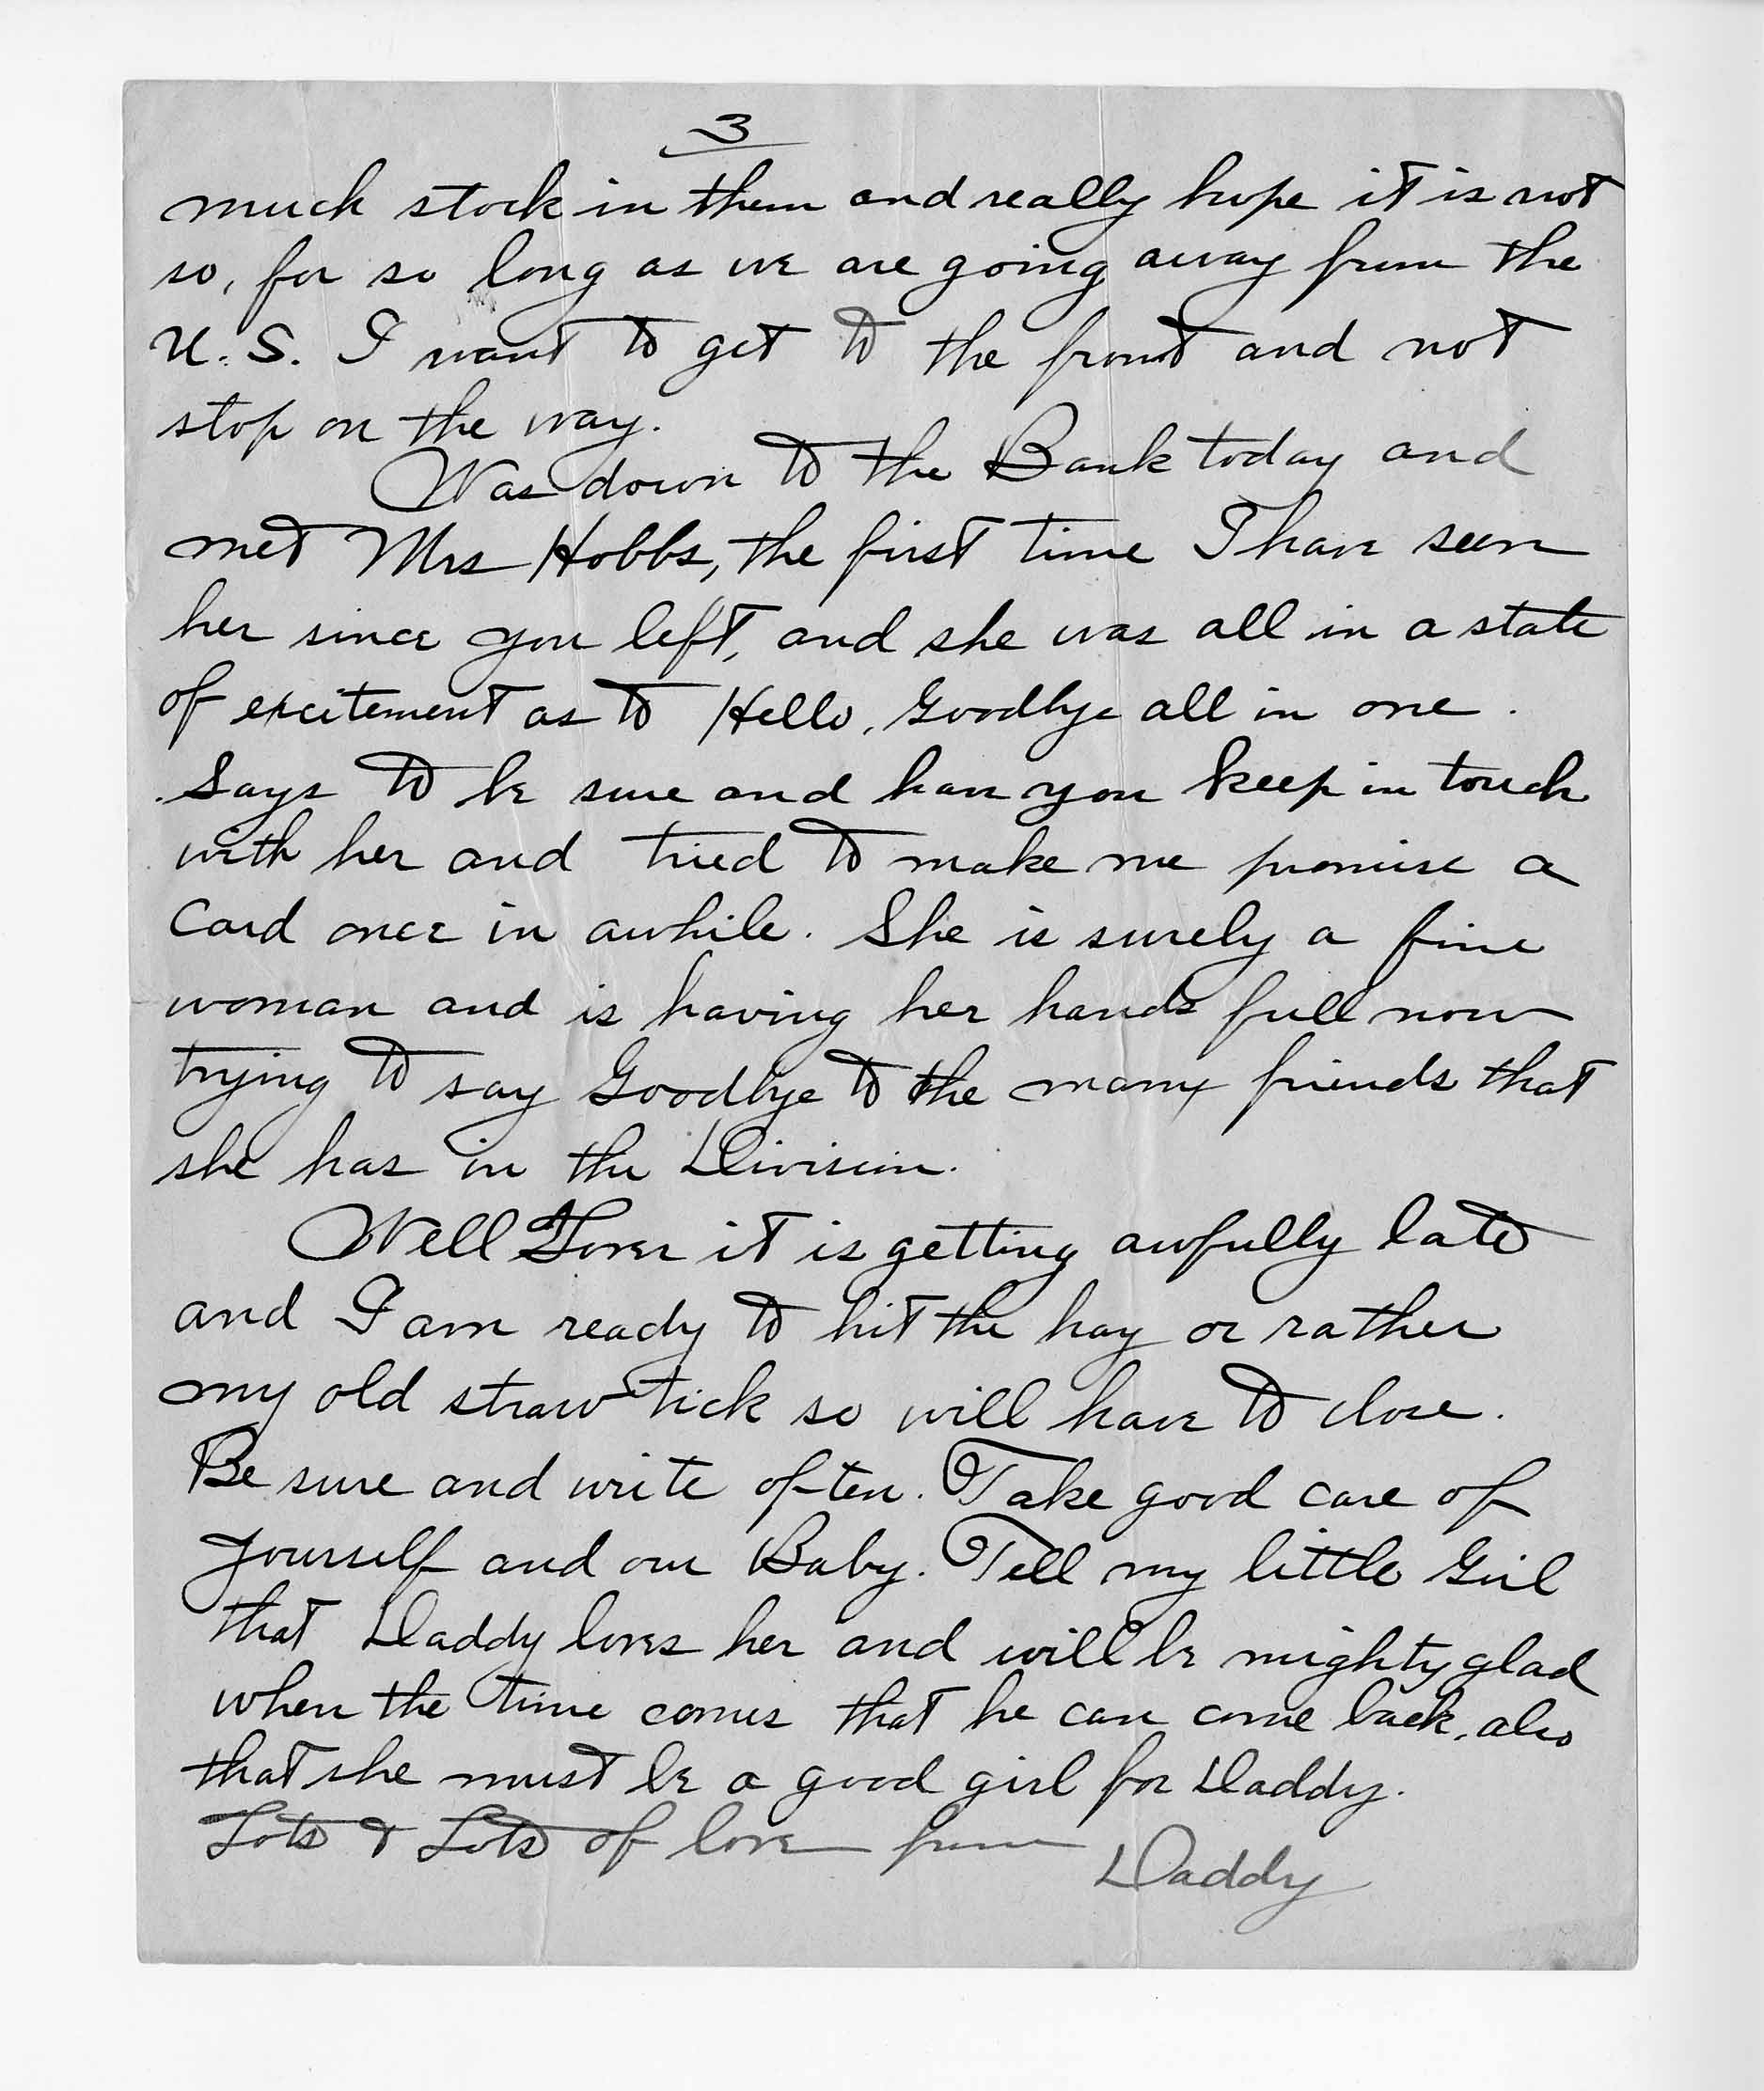 3
much stock in them and really hope it is not
so, for so long as we are going away from the
U.S. I want to get to the front and not
stop on the way.
Was down to the Bank today and
met Mrs Hobbs, the first time I have seen
her since you left, and she was all in a state
of excitement as to Hello, Goodbye all in one.
Says to be sure and have you keep in touch
with her and tried to make me promise a
Card once in awhile. She is surely a fine
woman and is having her hands full now
trying to say Goodbye to the many friends that
she has in the Division.
Well Lover it is getting awfully late
and I am ready to hit the hay or rather
my old straw tick so will have to close.
Be sure and write often. Take good care of
yourself and our Baby. Tell my little Girl
that Daddy loves her and will be mighty glad
when the time comes that he can come back, also
that she must be a good girl for Daddy.
Lots & Lots of love from
Daddy